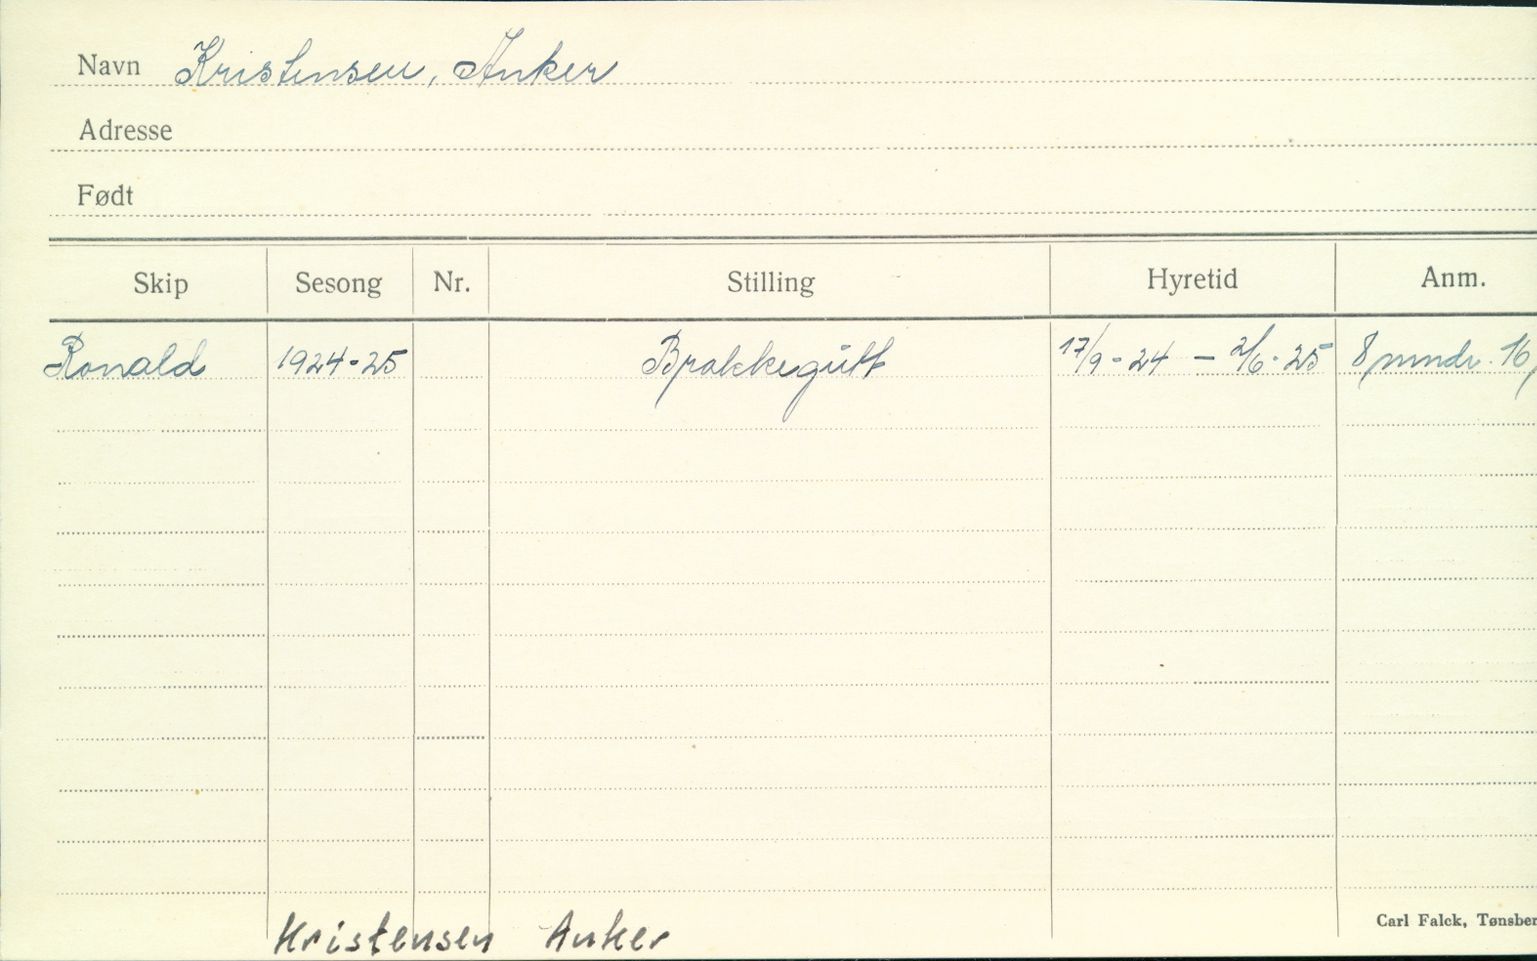 Navn Kristensen, Anker
Adresse
Født
Skip Sesong Nr. Stilling Hyretid Anm.
Ronald 1924-25 Brakkegutt 17/9-24 - 2/6-25 8 mndr. 16
Kristensen Anker
Carl Falck, Tønsber